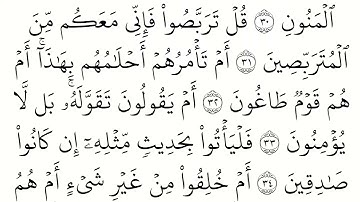 ٱلْمَنُونِ ٣٠ قُلْ تَرَبَّصُوا۟ فَإِنِّى مَعَكُم مِّنَ
ٱلْمُتَرَبِّصِينَ ٣١ أَمْ تَأْمُرُهُمْ أَحْلَٰمُهُم بِهَٰذَآ ۚ أَمْ
هُمْ قَوْمٌ طَاغُونَ ٣٢ أَمْ يَقُولُونَ تَقَوَّلَهُۥ ۚ بَل لَّا
يُؤْمِنُونَ ٣٣ فَلْيَأْتُوا۟ بِحَدِيثٍ مِّثْلِهِۦٓ إِن كَانُوا۟
صَٰدِقِينَ ٣٤ أَمْ خُلِقُوا۟ مِنْ غَيْرِ شَىْءٍ أَمْ هُمُ